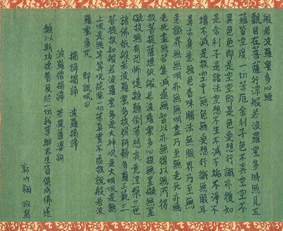 般若波羅蜜多心經
觀自在菩薩深般若波羅蜜多時照見五
蘊皆空度一切苦厄舍利子色不異空空不
異色色即是空空即是色受想行識亦復如
是舍利子是諸法空想不生不滅不垢不淨不
增不減是故空中無色無受想行識無眼耳
鼻舌身意無色香味觸法無眼界乃至無
意識界無無明亦無無明盡乃至無老死亦無
老死盡無苦集滅道無智亦無得以無所得
故菩提薩埵依般若波羅蜜多故心無罣礙無罣
礙故無有恐怖遠離顛倒夢想究竟涅槃三世
諸佛依般若波羅蜜多故得阿耨多羅三藐三
菩提故知般若波羅蜜多是大神咒是大明咒是無
上咒是無等等咒能除一切苦真實不虛故說般若波
羅蜜多咒 即說咒曰
揭諦揭諦 波羅揭諦
波羅僧揭諦 菩提薩婆訶
願以斯功德普及於一切我等與眾生皆俱成佛道